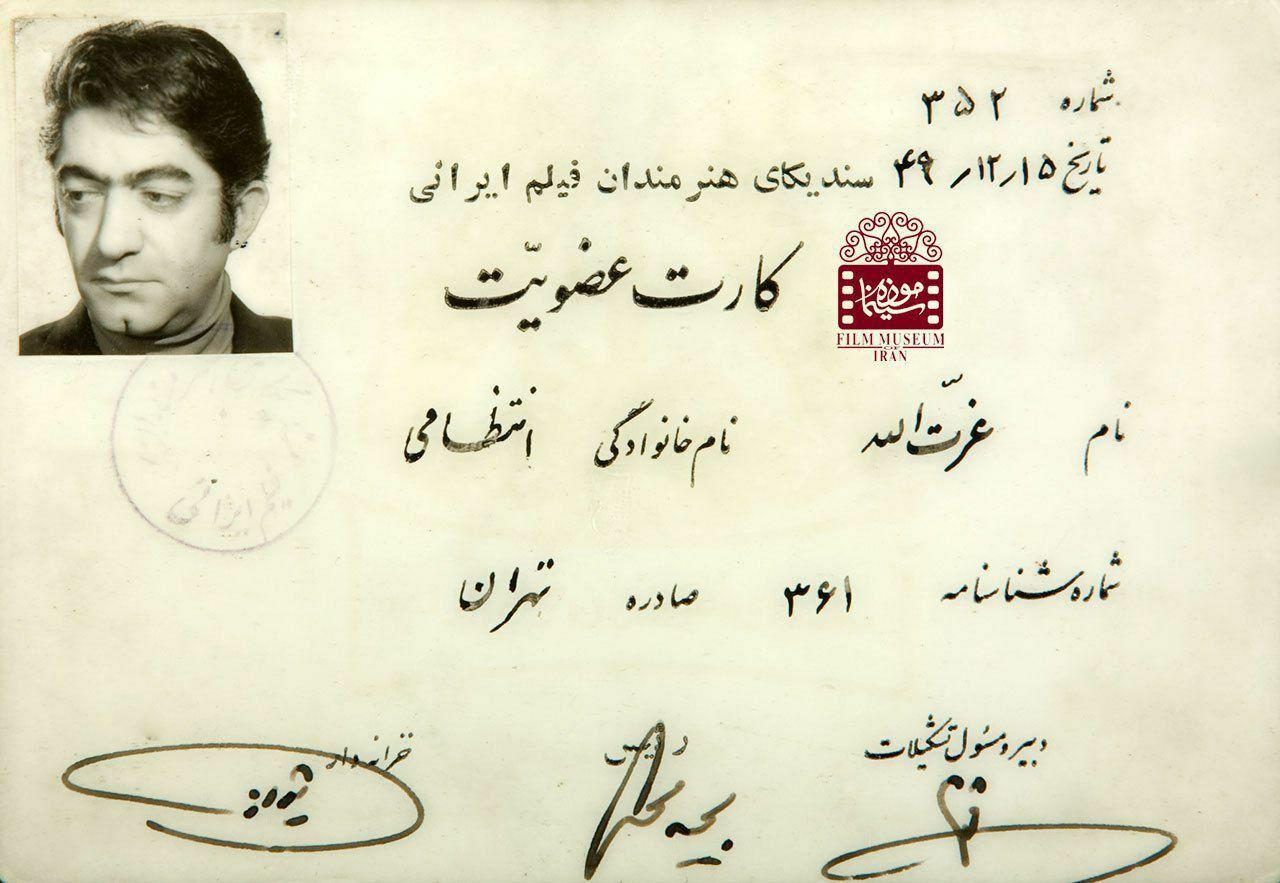 شماره ۳۵۲
تاریخ ۱۵/۱۲/۴۹
سندیکای هنرمندان فیلم ایرانی
کارت عضویّت
موزه سینما
FILM MUSEUM
OF
IRAN
نام عزّت الله نام خانوادگی انتظامی
شماره شناسنامه ۳۶۱ صادره تهران
دبیر و مسئول تشکیلات رئیس خزانه‌دار
فیلم ایرانی